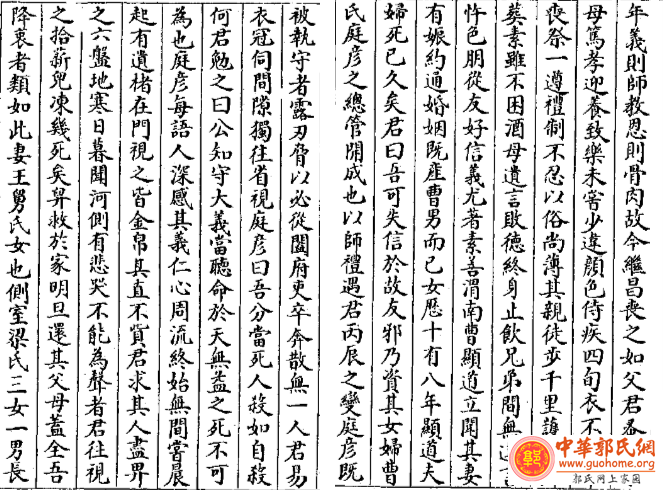 年義則師敎恩則骨肉故今繼昌喪之如父君
母篤孝迎養致樂未窖少違顏色侍疾四旬衣不
喪祭一遵禮制不忍以俗尚薄其親徒步千里
葬素雖不困酒母遺言敗德終身止飲兄弟間無
忤色朋從友好信義尤著素善渭南曹顯道立聞其妻
有娠約通婚姻既產曹男而己女歷十有八年顯道夫
婦死已久矣君曰吾可失信於故友邪乃資其女婦曹
氏庭彥之總管開成也以師禮遇君丙辰之變庭彥既
被執守者露刃脅以必從闔府吏卒奔散無一人君易
衣冠伺間隙獨往省視庭彥曰吾分當死人殺如自殺
何君勉之曰公知守大義當聽命於天無益之死不可
為也庭彥每語人深感其義仁心周流終始無間嘗晨
起有遺楮在門視之皆金帛其直不貲君求其人盡畀
之六盤地寒日暮聞河側有悲哭不能為聲者君往視
之拾薪兒凍幾死矣舁救於家明旦還其父母蓋全吾
降衷者類如此妻王舅氏女也側室梁氏三女一男長
中華郭氏網
www.guohome.org
郭氏网上家園